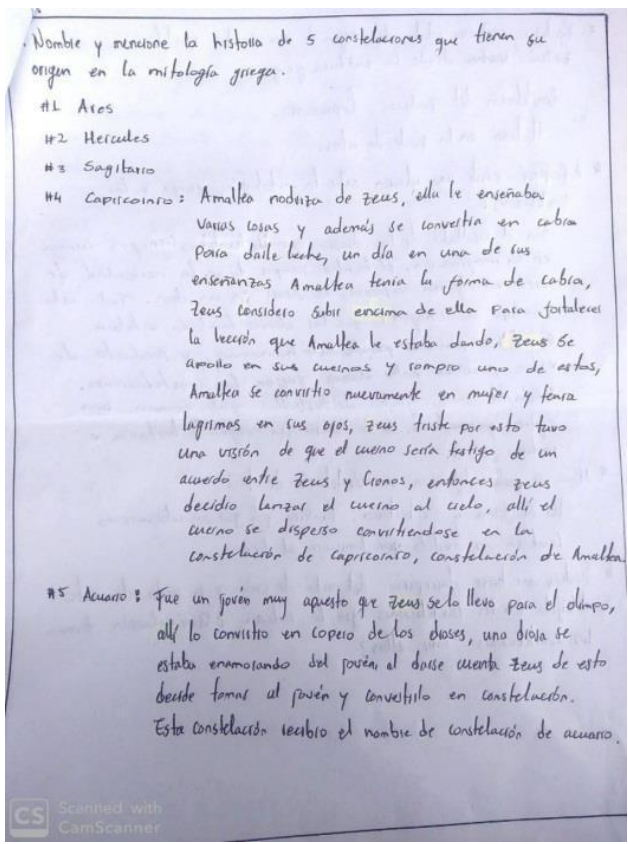 . Nombre y mencione la historia de 5 constelaciones que tienen su
origen en la mitología griega.
#1 Ares
#2 Hercules
#3 Sagitario
#4 Capricornio : Amaltea nodriza de Zeus, ella le enseñaba
varias cosas y además se convertia en cabra
para darle leche, un día en una de sus
enseñanzas Amaltea tenia la forma de cabra,
Zeus considero subir encima de ella para fortalecer
la lección que Amaltea le estaba dando, Zeus se
apollo en sus cuernos y rompio uno de estos,
Amaltea se convirtio nuevamente en mujer y tenia
lagrimas en sus ojos, Zeus triste por esto tuvo
una visión de que el cuerno sería testigo de un
acuerdo entre Zeus y Cronos, entonces Zeus
decidio lanzar el cuerno al cielo, allí el
cuerno se disperso convirtiendose en la
constelación de capricornio, constelación de Amaltea.
#5 Acuario : Fue un joven muy apuesto que Zeus se lo llevo para el olimpo,
allí lo convirtio en copero de los dioses, una diosa se
estaba enamorando del joven, al darse cuenta Zeus de esto
decide tomar al joven y convertirlo en constelación.
Esta constelación recibio el nombre de constelación de acuario.
CS Scanned with
CamScanner